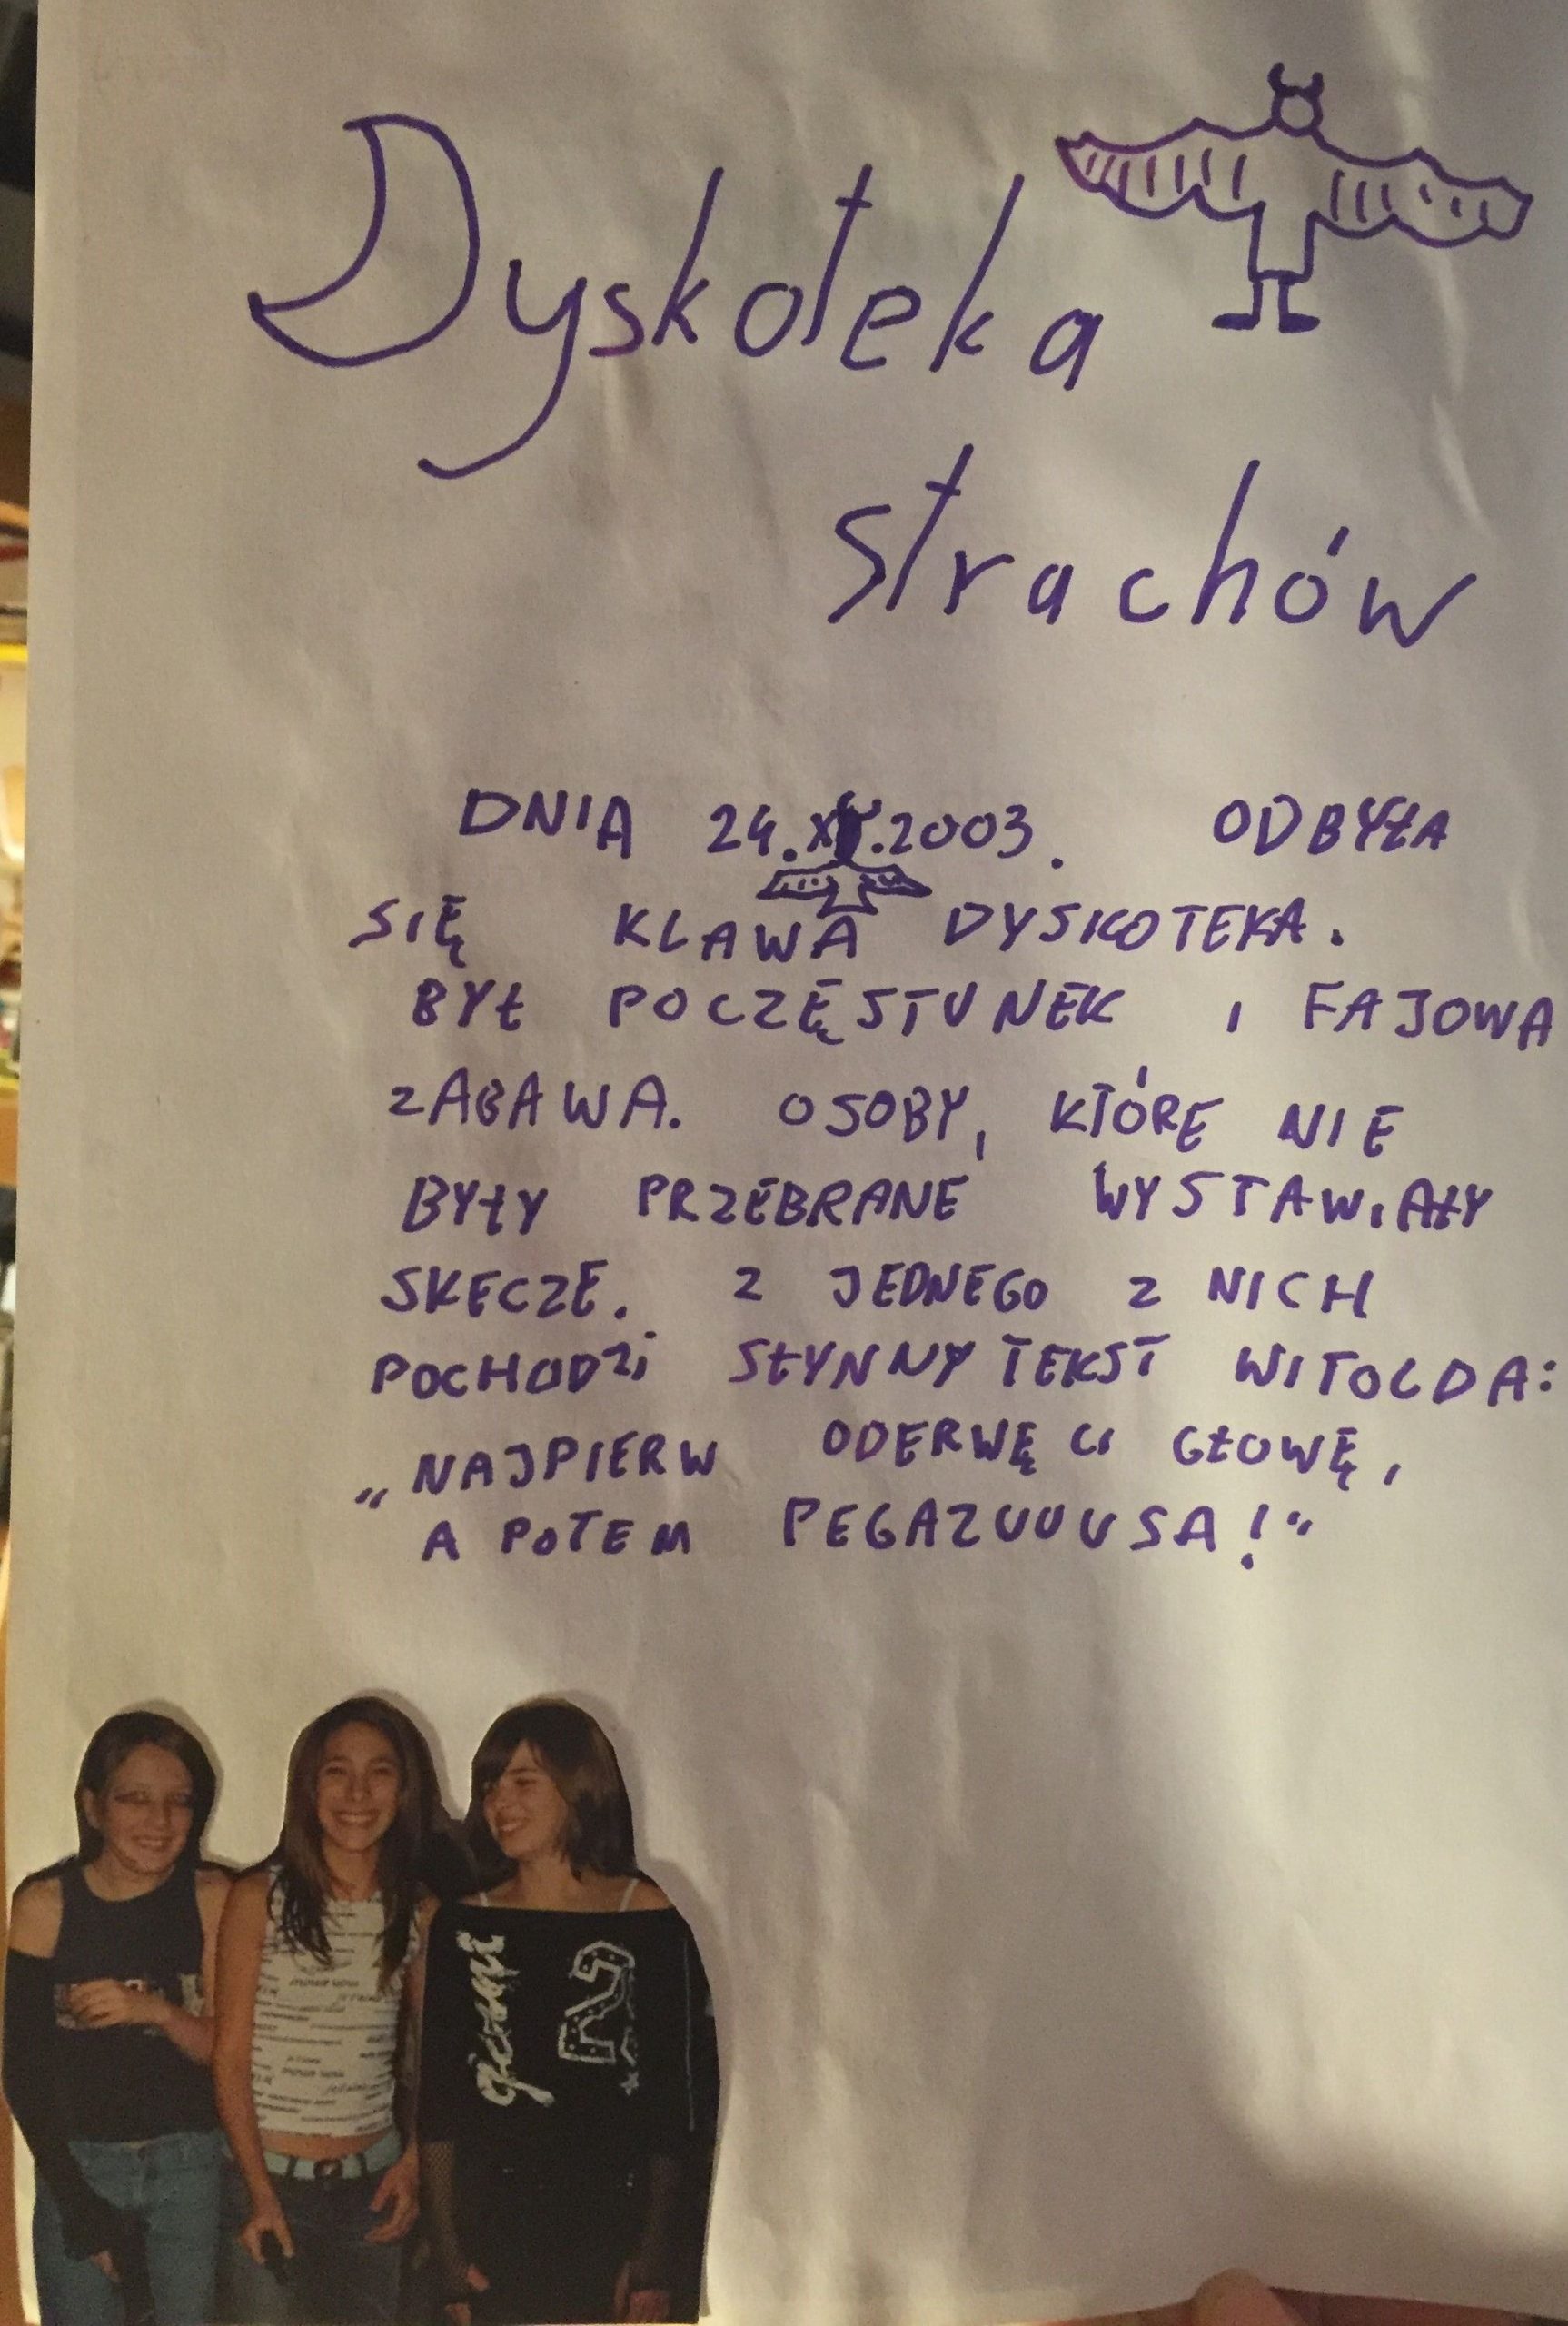 Dyskoteka
strachów
DNIA 24.X.2003. ODBYŁA
SIĘ KLAWA DYSKOTEKA.
BYŁ POCZĘSTUNEK I FAJOWA
ZABAWA. OSOBY, KTÓRE NIE
BYŁY PRZEBRANE WYSTAWIAŁY
SKECZE. Z JEDNEGO Z NICH
POCHODZi SŁYNNY TEKST WITOLDA:
„NAJPIERW ODERWĘ CI GŁOWĘ,
A POTEM PEGAZUUUSA!"